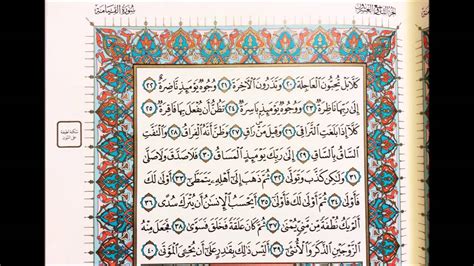 الجزء التاسع والعشرون
سُورَةُ القِيَامَةِ
كَلَّا بَلْ تُحِبُّونَ ٱلْعَاجِلَةَ ٢٠ وَتَذَرُونَ ٱلْآخِرَةَ ٢١ وُجُوهٌ يَوْمَئِذٍ نَّاضِرَةٌ ٢٢
إِلَىٰ رَبِّهَا نَاظِرَةٌ ٢٣ وَوُجُوهٌ يَوْمَئِذٍ بَاسِرَةٌ ٢٤ تَظُنُّ أَن يُفْعَلَ بِهَا فَاقِرَةٌ ٢٥
كَلَّا إِذَا بَلَغَتِ ٱلتَّرَاقِيَ ٢٦ وَقِيلَ مَنْ رَاقٍ ٢٧ وَظَنَّ أَنَّهُ ٱلْفِرَاقُ ٢٨ وَٱلْتَفَّتِ
ٱلسَّاقُ بِٱلسَّاقِ ٢٩ إِلَىٰ رَبِّكَ يَوْمَئِذٍ ٱلْمَسَاقُ ٣٠ فَلَا صَدَّقَ وَلَا صَلَّىٰ
٣١ وَلَٰكِن كَذَّبَ وَتَوَلَّىٰ ٣٢ ثُمَّ ذَهَبَ إِلَىٰ أَهْلِهِ يَتَمَطَّىٰ ٣٣ أَوْلَىٰ لَكَ
فَأَوْلَىٰ ٣٤ ثُمَّ أَوْلَىٰ لَكَ فَأَوْلَىٰ ٣٥ أَيَحْسَبُ ٱلْإِنسَٰنُ أَن يُتْرَكَ سُدًى ٣٦
أَلَمْ يَكُ نُطْفَةً مِّن مَّنِيٍّ يُمْنَىٰ ٣٧ ثُمَّ كَانَ عَلَقَةً فَخَلَقَ فَسَوَّىٰ ٣٨ فَجَعَلَ مِنْهُ
ٱلزَّوْجَيْنِ ٱلذَّكَرَ وَٱلْأُنثَىٰ ٣٩ أَلَيْسَ ذَٰلِكَ بِقَٰدِرٍ عَلَىٰ أَن يُحْيِيَ ٱلْمَوْتَىٰ ٤٠
سكتة لطيفة
على النون